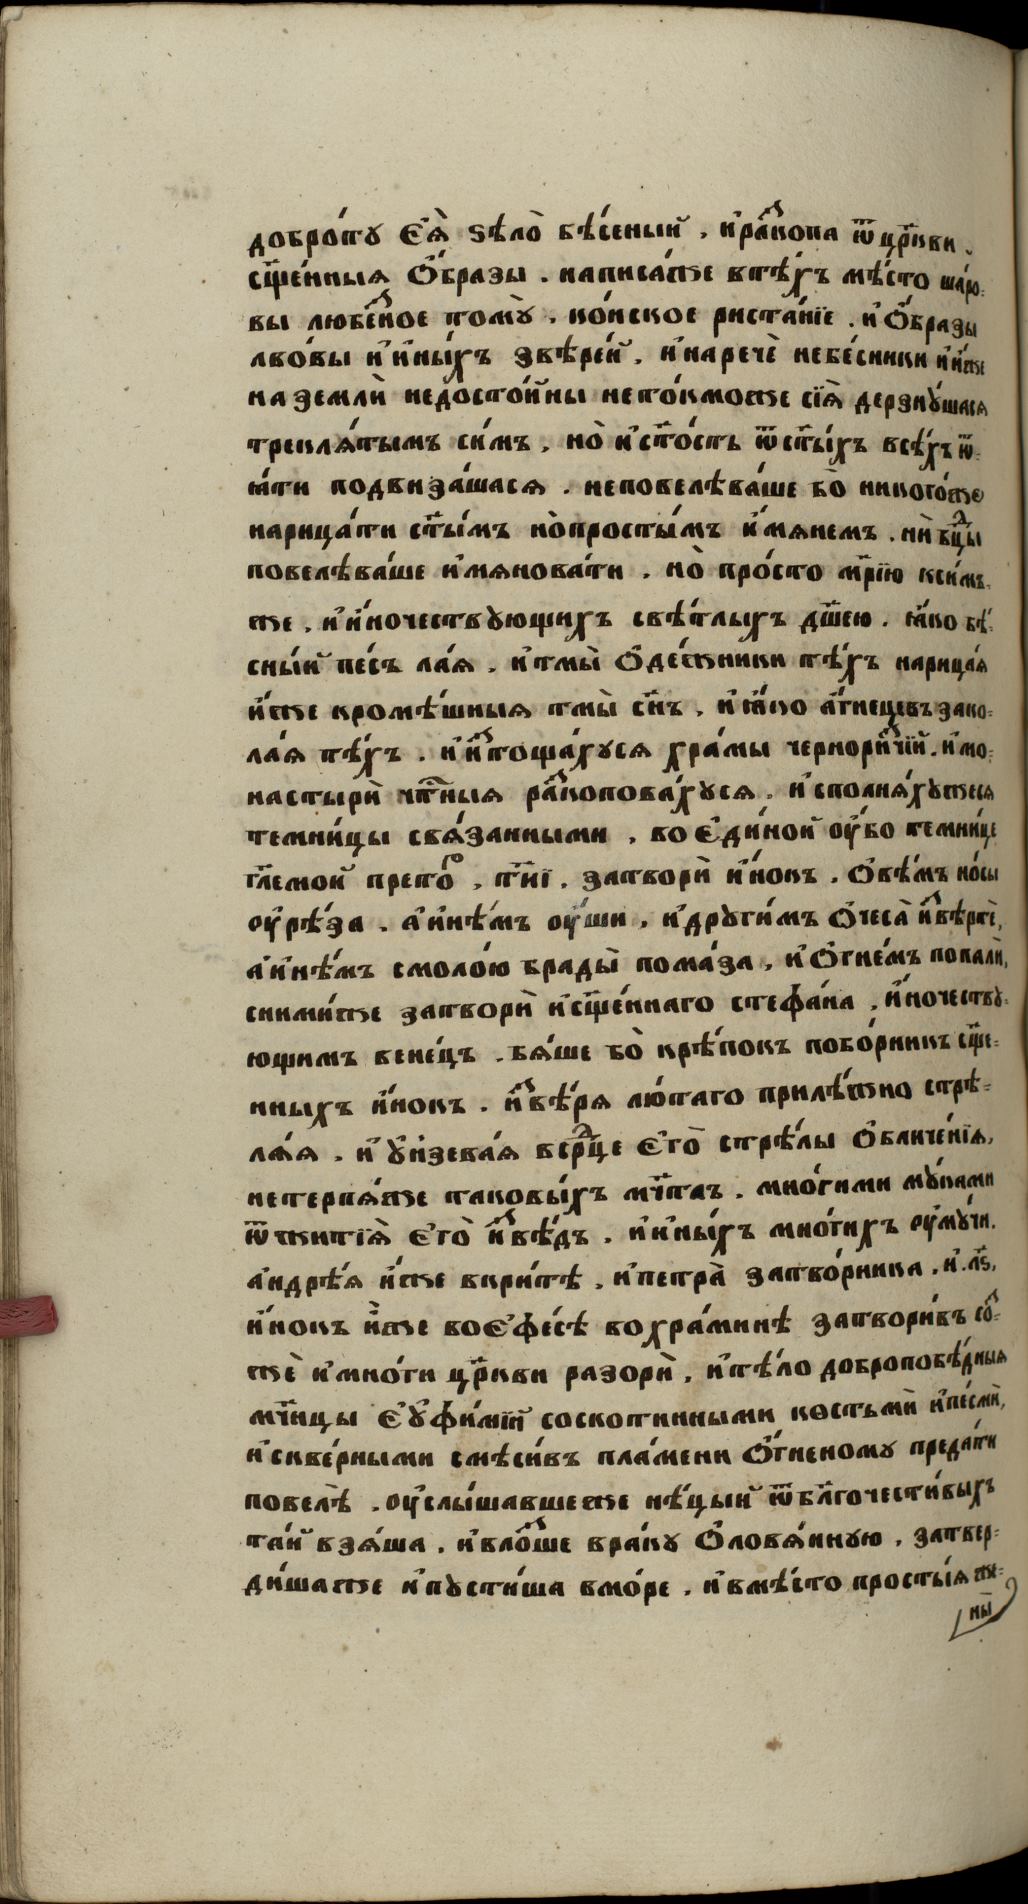 добро́ту є҆ѧ̀ ѕѣло̀ бѣ́сеный . и҆ра́скопа ѿцр҃кви .
сщ҃е́нныѧ ѻ҆́бразы . написа́же втѣ́хъ мѣ́сто ша́ро-
вы любе́зное тому̀ . ко́нское риста́нїе . и҆ ѻ҆́бразы
льво́вы и҆ и҆ны́хъ звѣре́й . и҆наречѐ небе́сники и҆и҆́же
на землѝ недосто́йны нето́кможе сїѧ̀ дерзну́шасѧ
треклѧ́тымъ си́мъ , но̀ и҆ст҃ость ѿст҃ы́хъ всѣ́хъ ѿ-
ꙗ҆́ти подвиза́шасѧ . неповелѣва́ше бо̀ никого́же
нарица́ти ст҃ы́мъ но̀просты́мъ и҆́мѧнемъ . нѝ бц҃ды
повелѣва́ше и҆мѧнова́ти . но̀ про́сто мр҃і́ю кси́мъ
же . и҆ и҆́ночествующихъ свѣ́тлыхъ дш҃ею . ꙗ҆́ко бѣ́-
сны́й пе́съ ла́ѧ , и҆тмы̀ ѻ҆де́жники тѣ́хъ нарица́ѧ
и҆́же кромѣ́шныѧ тмы̀ сн҃ъ , и҆ ꙗ҆́ко а҆́гнецевъ зако-
ла́ѧ тѣ́хъ . и҆ и҆стоща́хусѧ хра́мы чернори́зчїй . и҆ мо-
настырѝ чт҃ныѧ ра́скопова́хусѧ , и҆сполнѧ́хужесѧ
темни́цы свѧ́занными , во є҆ди́ной оу҆́бо темни́це
гл҃емой прето́р , т҃м҃і . затворѝ и҆́нокъ . ѻ҆вѣ́мъ но́сы
оу҆рѣ́за . а҆ и҆нѣ́мъ оу҆́ши , и҆ дру́гимъ ѻ҆чеса̀ и҆звѣртѐ ,
а҆и҆нѣ́мъ смоло́ю брады̀ пома́за , и҆ ѻ҆гне́мъ попалѝ ,
сни́миже затворѝ и҆сщ҃е́ннаго стефа́на , и҆́ночеству-
ющимъ вене́цъ . бѧ́ше бо̀ крѣ́покъ побо́рникъ сщ҃е-
нныхъ и҆́нокъ . и҆ звѣ́рѧ лю́таго прилѣ́жно стрѣ-
лѧ́ѧ . и҆ у҆́ѧзева́ѧ всрд҃це є҆го̀ стрѣ́лы ѻ҆бличе́нїѧ ,
нетерпѧ́же таковы́хъ мч҃таъ . мно́гими му́ками
ѿжитїѧ̀ є҆го̀ и҆зве́дъ . и҆ и҆ны́хъ мно́гихъ оу҆му́чи .
а҆ндрѣ́ѧ и҆́же вкри́тѣ , и҆ петра̀ затво́рника . и҆ .л҃ѕ .
и҆́нокъ и҆́же воє҆фе́сѣ вохра́минѣ затвори́въ со-
жѐ и҆мно́ги цр҃кви разорѝ . и҆тѣ́ло доброповѣ́дныѧ
мч҃ицы є҆ѵфимі́й соскотинными костьмѝ и҆пе́смѝ ,
и҆скве́рными смѣси́въ пла́мени ѻ҆́гненому преда́ти
повелѣ̀ . оу҆слы́шавшеже нѣ́цый ѿбл҃гочести́выхъ
та́й взѧ́ша . и҆вло́жше вра́ку ѻ҆ловѧ́нную , затвер-
ди́шаже и҆пусти́ша вмо́ре , и҆вмѣ́сто просты́ѧ же-
ны̀